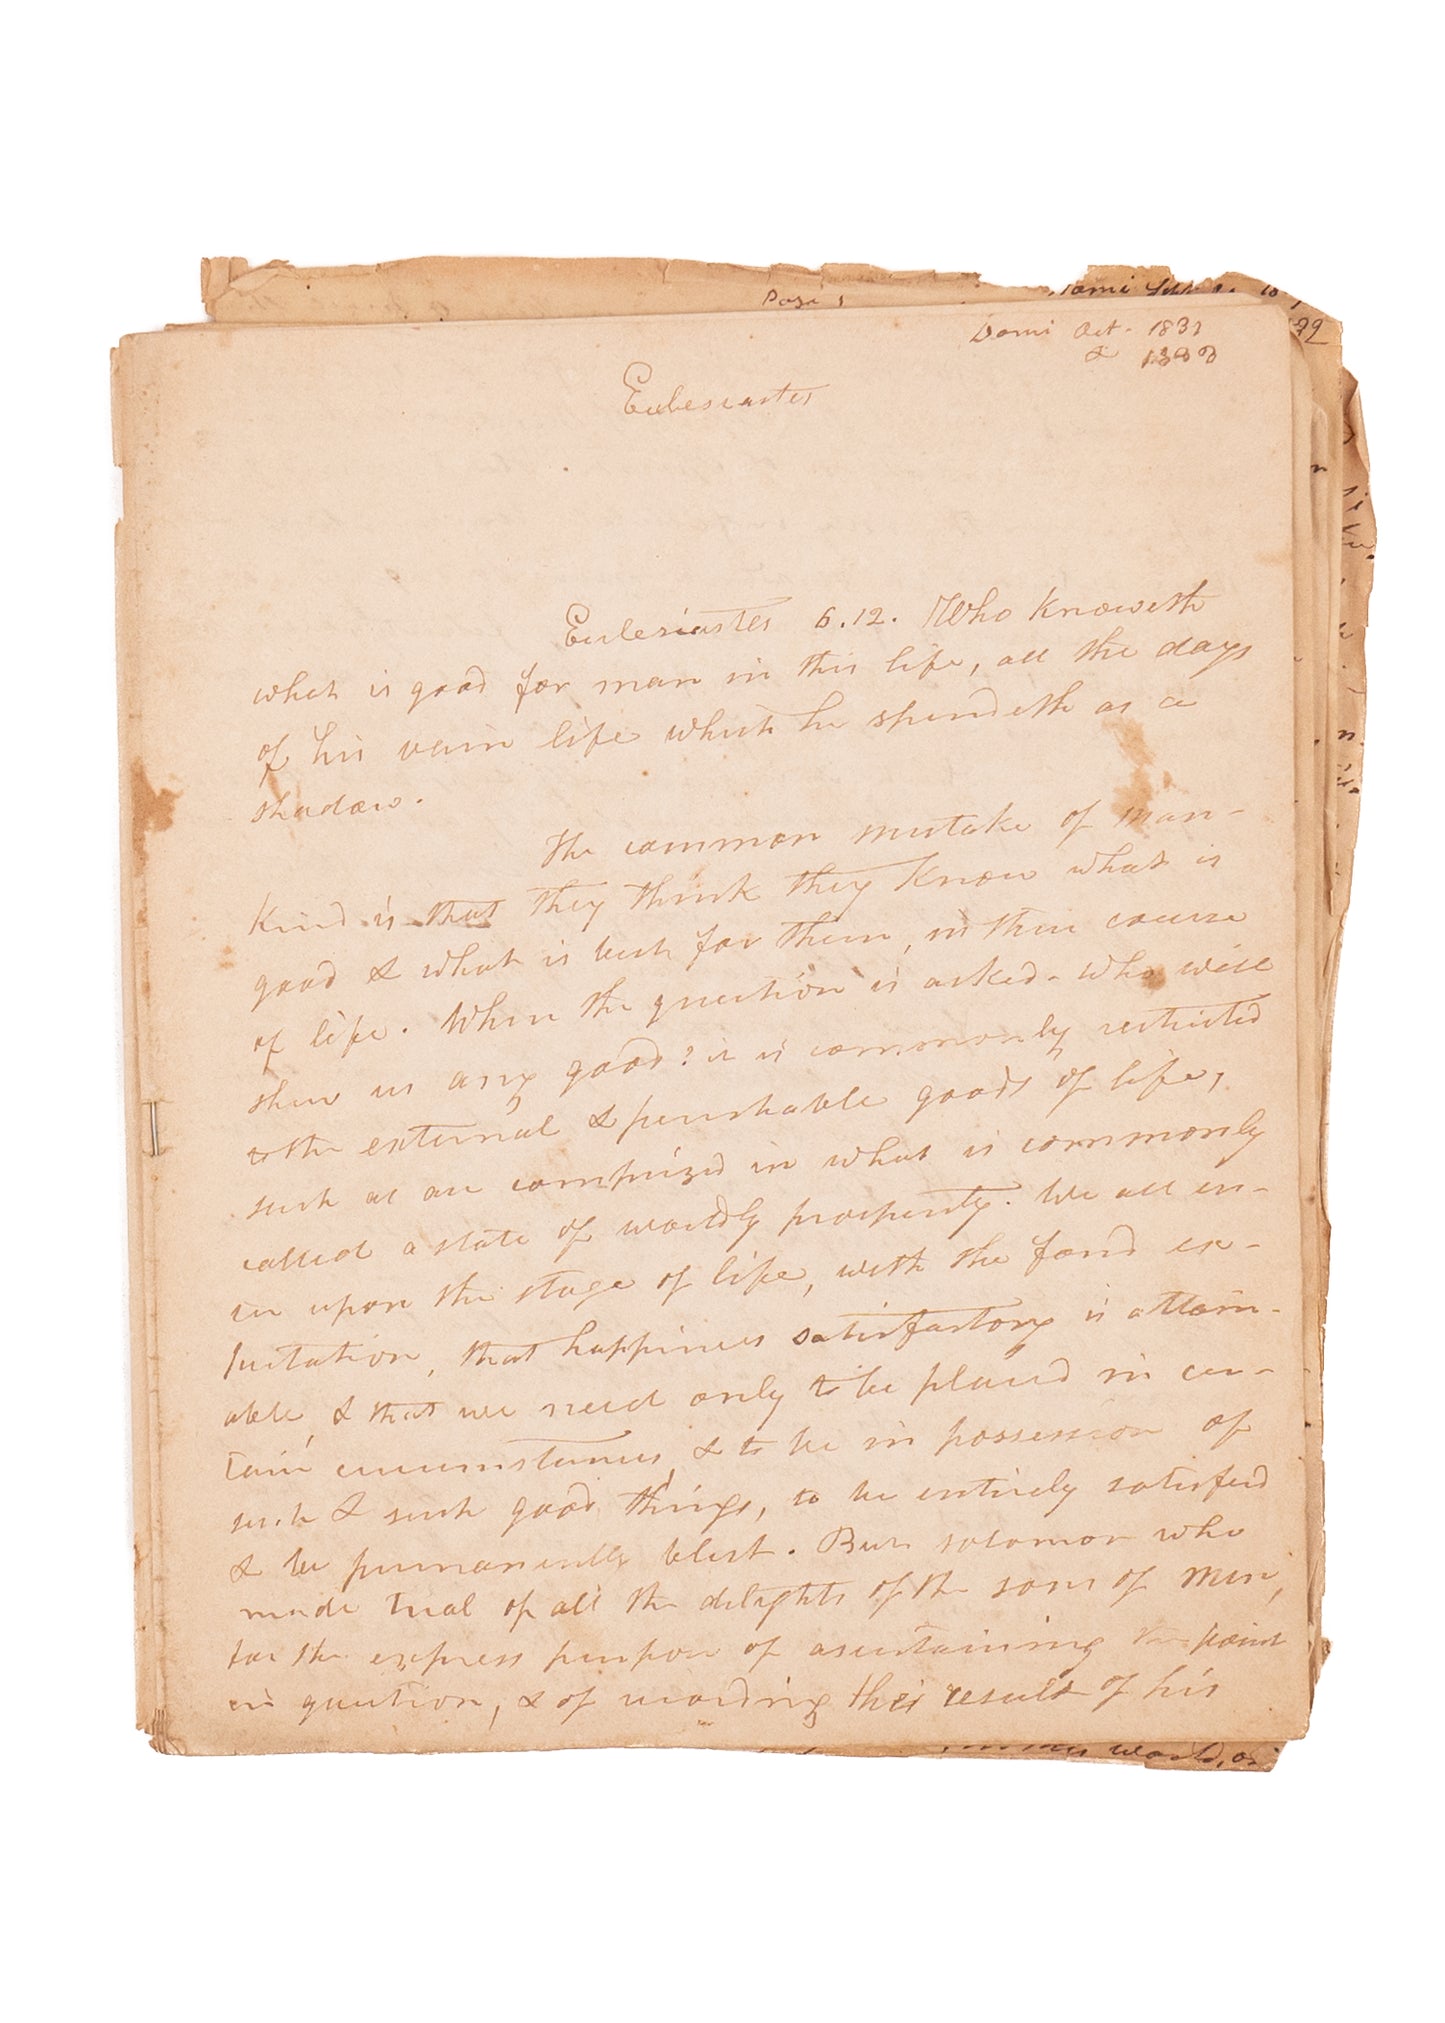 Page 1
Domi Oct. 1831
&
Ecclesiastes
Ecclesiastes 6.12. Who knoweth
what is good for man in this life, all the days
of his vain life which he spendeth as a
shadow.
The common mistake of man-
kind is that they think they know what is
good & what is best for them, in their course
of life. When the question is asked - who will
shew us any good? it is commonly restricted
to the external & perishable goods of life,
such as are comprized in what is commonly
called a state of worldly prosperity. We all en-
ter upon the stage of life, with the fond ex-
pectation, that happiness satisfactory is attain-
able, & that we need only to be placed in cer-
tain circumstances, & to be in possession of
such & such good things, to be entirely satisfied
& be permanently blest. But solomon who
made trial of all the delights of the sons of men,
for the express purpose of ascertaining the point
in question, & of recording the result of his